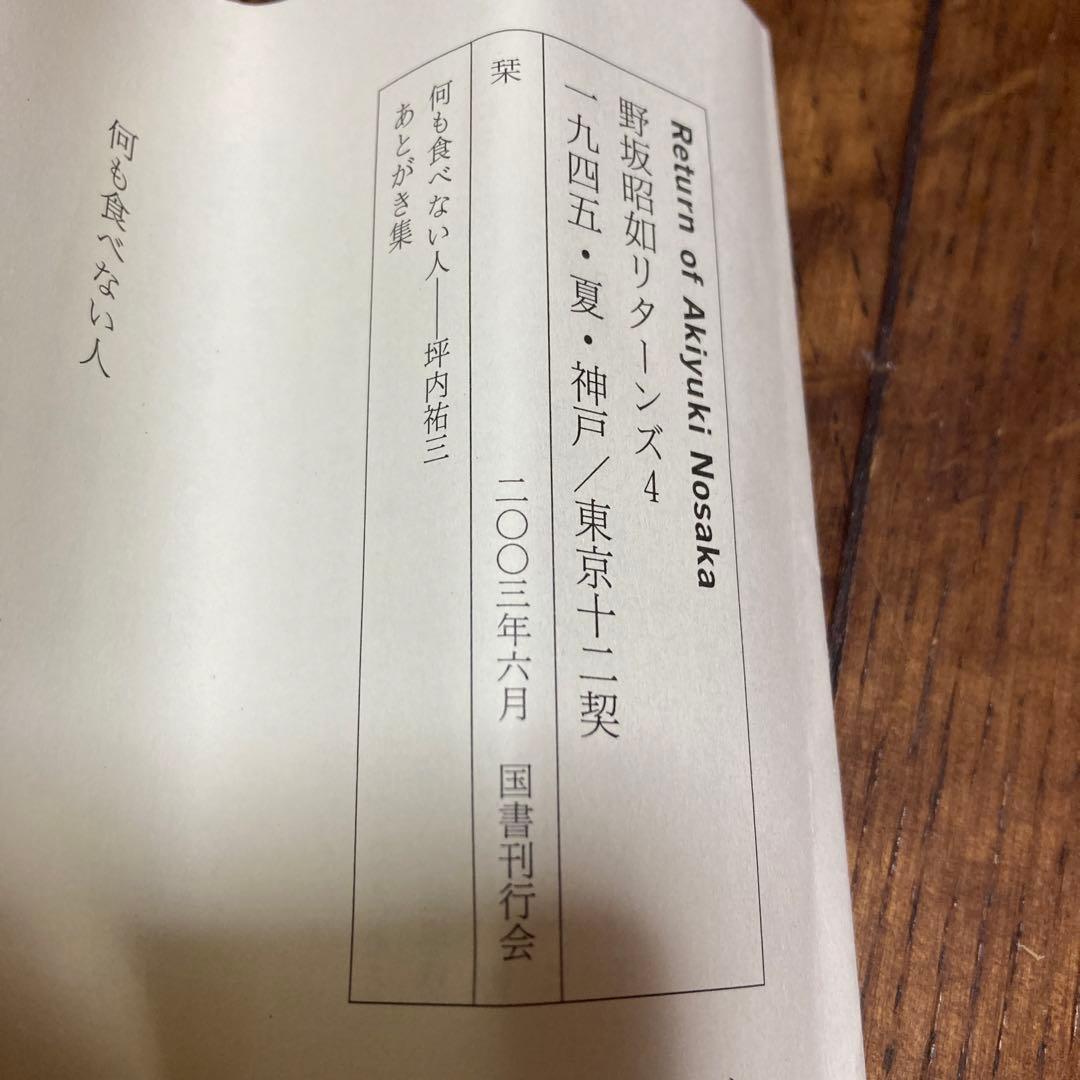 Return of Akiyuki Nosaka
野坂昭如リターンズ4
一九四五・夏・神戸/東京十二契
栞 二〇〇三年六月 国書刊行会
何も食べない人──坪内祐三
あとがき集
何も食べない人